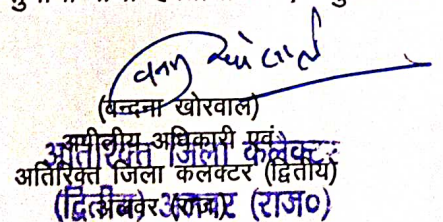 (वन्दना खोरवाल)
अपीलीय अधिकारी एवं
अतिरिक्त जिला कलेक्टर
अतिरिक्त जिला कलक्टर (द्वितीय)
(द्वितीय) अलवर (राज०)
अलवर (राज०)